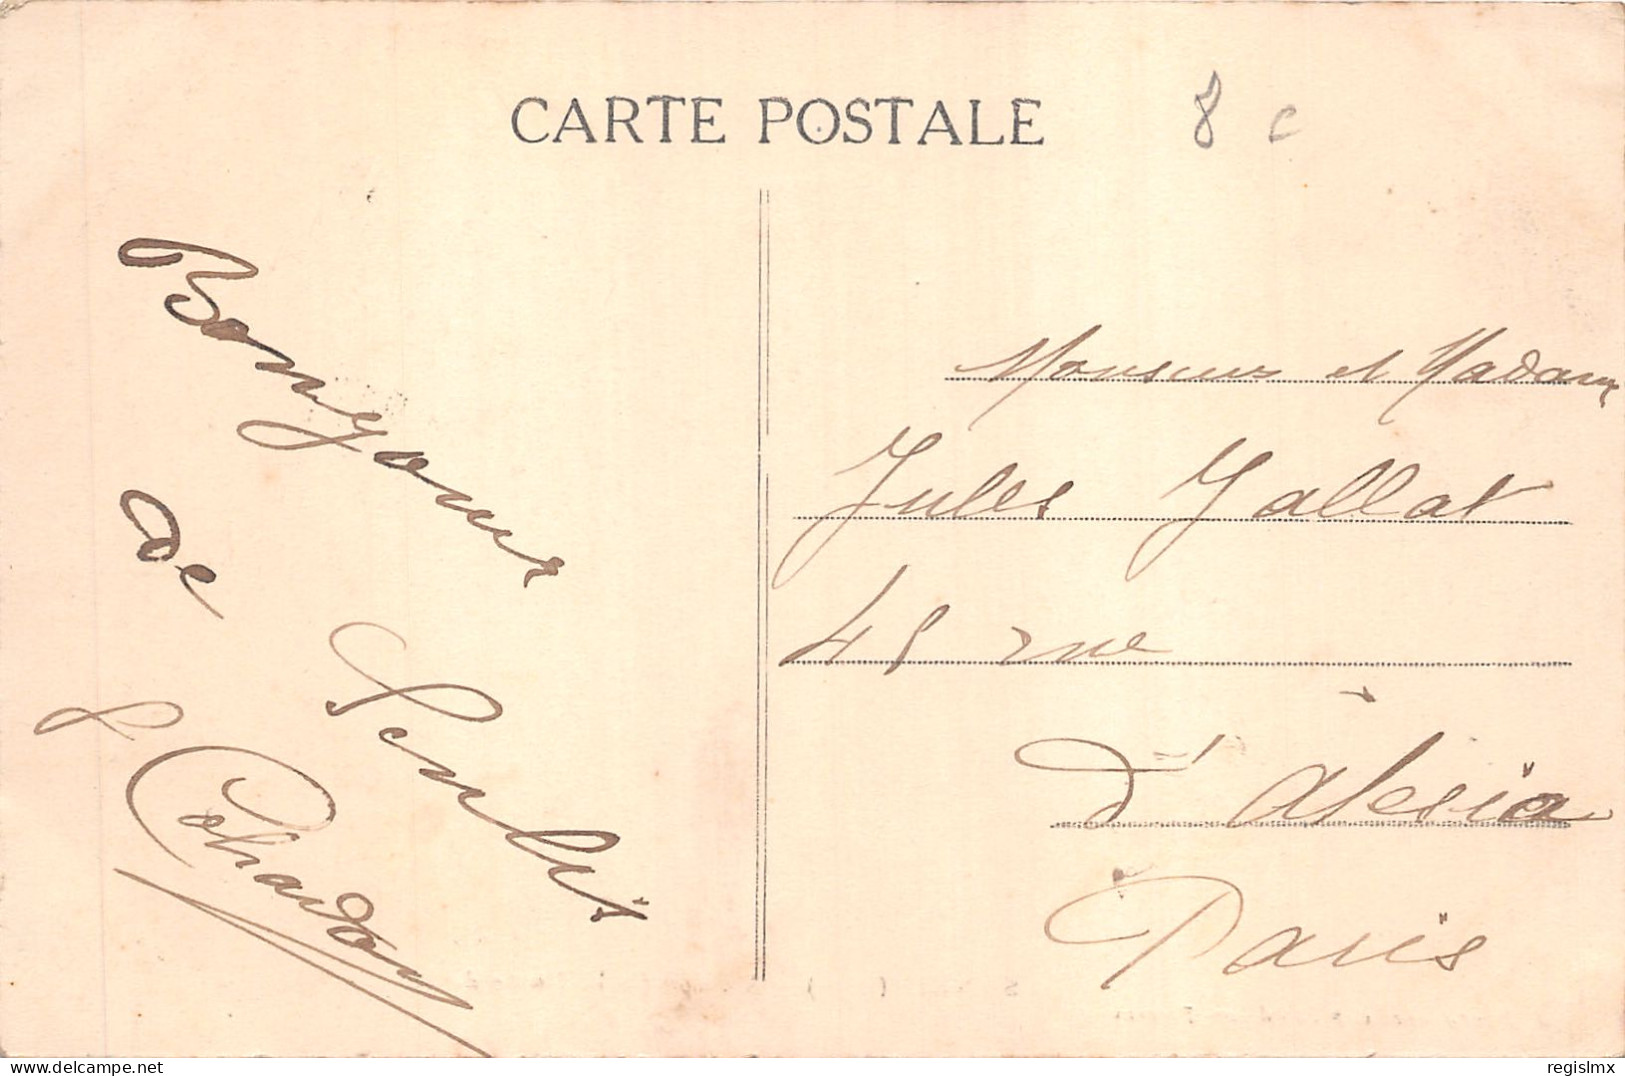 CARTE POSTALE
8 c
Bonjour
de
Senlis
Chardon
Monsieur et Madame
Jules Jallat
48 rue
d'Alésia
Paris
regislmx